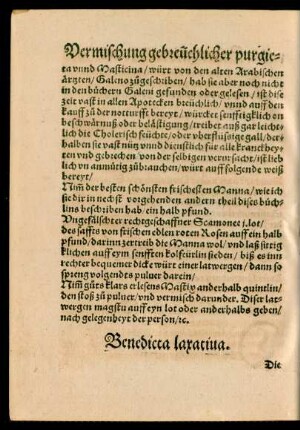 Vermischung gebreüchlicher purgie-
ta vnnd Masticina / würt von den alten Arabischen
ärtzten / Galeno zůgeschriben / hab sie aber noch nicht
in den büchern Galeni gefunden oder gelesen / ist dise
zeit vast in allen Apotecken breüchlich / vnnd auff den
kauff zů der notturfft bereyt / würcket senfftigklich on
beschwärnuß oder belästigung / treibet auß gar leicht-
lich die Cholerisch feüchte / oder überflüssige gall / der-
halben sie vast nütz vnnd dienstlich für alle kranckhey-
ten vnd gebrechen von der selbigen verursacht / ist lieb
lich vn anmütig zůbrauchen / würt auff folgende weiß
bereyt /
Nim̃ der besten schönsten frischesten Manna / wie ich
sie dir in nechst vorgehenden andern theil diser büch-
lins beschriben hab ein halb pfund.
Vngefälschter rechtgeschaffner Scamonet j. lot /
des saffts von frischen edlen roten Rosen auff ein halb
pfund / darinn zertreib die Manna wol / vnd laß sittig
klichen auff eyn senfften kolfeürlin sieden / biß es inn
rechter bequemer dicke würt einer latwergen / dann so
spreng volgendts puluer darein /
Nim̃ gůts klars erlesens Mastix anderhalb quintlin /
den stoß zů puluer / vnd vermisch darunder. Diser lat-
wergen magstu auff eyn lot oder anderhalbs geben /
nach gelegenheyt der person / ꝛc.
Benedicta laxatiua.
Die